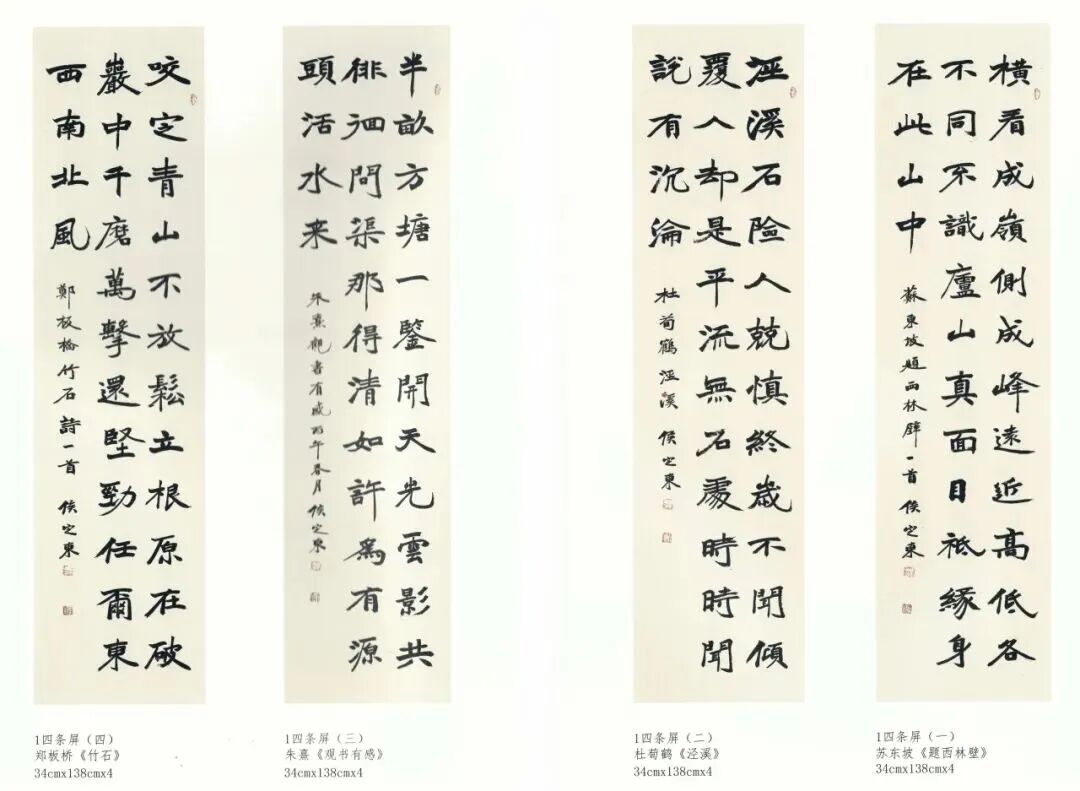 橫看成嶺側成峰遠近高低各
不同不識廬山真面目祗緣身
在此山中
蘇東坡題西林壁一首 侯定東
1四条屏（一）
苏东坡《题西林壁》
34cmx138cmx4
涇溪石險人兢慎終歲不聞傾
覆人却是平流無石處時時聞
説有沉淪
杜荀鶴涇溪 侯定東
1四条屏（二）
杜荀鹤《泾溪》
34cmx138cmx4
半畝方塘一鑒開天光雲影共
徘徊問渠那得清如許為有源
頭活水来
朱熹觀書有感丙午春月 侯定東
1四条屏（三）
朱熹《观书有感》
34cmx138cmx4
咬定青山不放鬆立根原在破
巖中千磨萬擊還堅勁任爾東
西南北風
鄭板橋竹石詩一首 侯定東
1四条屏（四）
郑板桥《竹石》
34cmx138cmx4